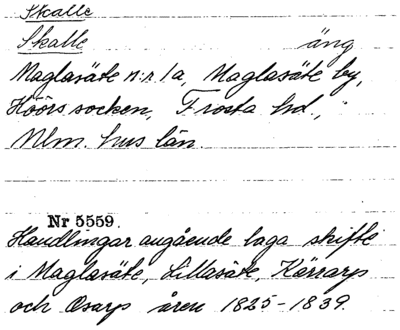 Skalle
Skalle äng
Maglasäte n:r 1a, Maglasäte by,
Höörs socken, Frosta hd.,
Mlm. hus län.
Nr 5559.
Handlingar angående laga skifte
i Maglasäte, Lillasäte, Kärrarp
och Osarp åren 1825-1839.